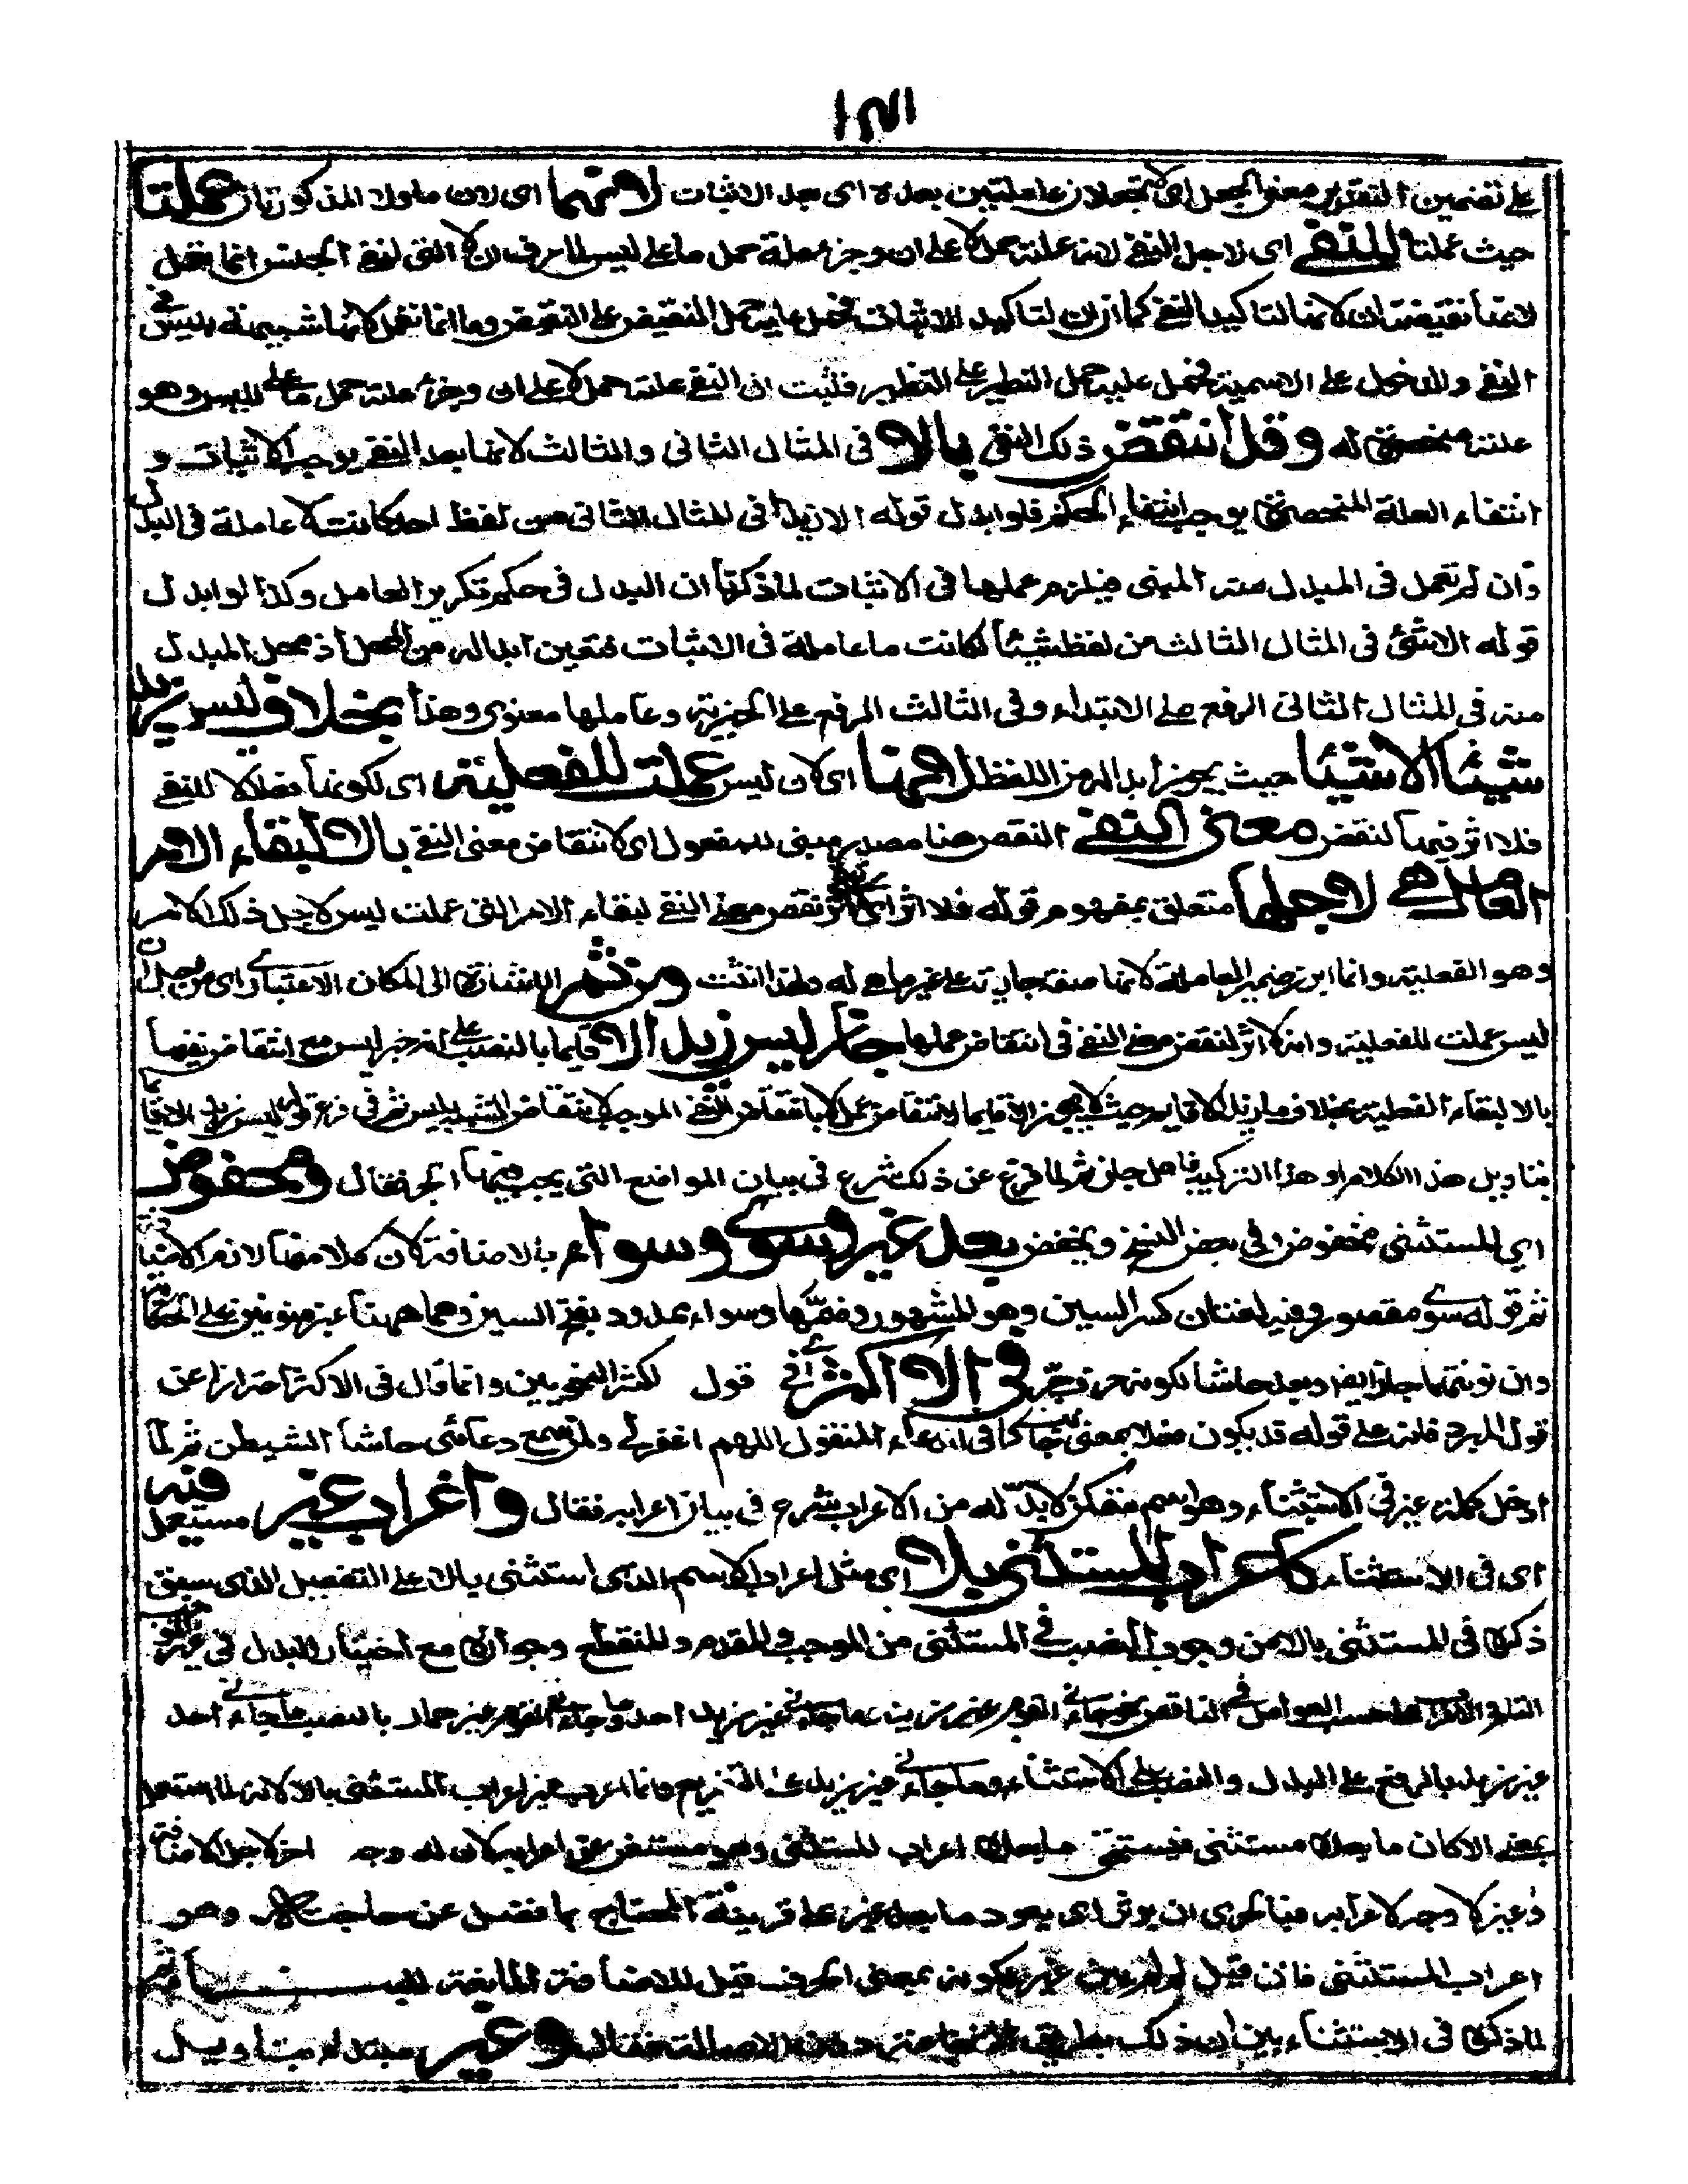 ١٣١
على تضمين التقدير معنى الجعل اى لا تجعلان عاملتين بعده اى بعد الاثبات لانهما اى لان ما ولا المذكورتان عملتا
حيث عملتا للنفى اى لاجل النفى لانه علته حمل لا على ان وجزء علة حمل ما على ليس لما عرف ان لا التى لنفى الجنس انما تعمل
لانها نقيضة ان لانها لتاكيد النفى كما ان ان لتاكيد الاثبات فحمل عليه حمل النقيض على النقيض وما انما تعمل لانها شبيهة بليس فى
النفى والدخول على الاسمية فحمل عليه حمل النظير على النظير فثبت ان النفى علة حمل لا على ان وجزء علة حمل ما على ليس وهو
علته منحصرة له وقد انتقض ذلك النفى بالا فى المثال الثانى والثالث لانها بعد النفى يوجب الاثبات و
انتفاء العلة المنحصرة يوجب انتفاء الحكم فلو ابدل قوله الا زيدا فى المثال الثانى من لفظ احد كانت لا عاملة فى البدل
وان لم تعمل فى المبدل منه المبنى فيلزم عملها فى الاثبات لما ذكرنا ان البدل فى حكم تكرير العامل وكذا لو ابدل
قوله الا شئ فى المثال الثالث من لفظ شيئا لكانت ما عاملة فى الاثبات فتعين ابداله من المحل اذ محل المبدل
منه فى المثال الثانى الرفع على الابتداء وفى الثالث الرفع على الخبرية وعاملها معنوى وهذا بخلاف ليس زيد
شيئا الا شيئا حيث يجوز ابداله من اللفظ لانها اى لان ليس عملت للفعلية اى لكونها فعلا لا للنفى
فلا اثر فيها لنقض معنى النفى النقض هنا مصدر مبنى للمفعول اى لانتقاض معنى النفى بالا لبقاء الامر
العاملة هى لاجلها متعلق بمفهوم قوله فلا اثر اى لا اثر نقض معنى النفى لبقاء الامر التى عملت ليس لاجل ذلك الامر
وهو الفعلية وانما ابرز ضمير العاملة لانها صفة جارية على غير ما هى له ولهذا انثت ومن ثم اشارة الى المكان الاعتبارى اى من اجل ان
ليس عملت للفعلية وانه لا اثر لنقض معنى النفى فى انتقاض عملها جاز ليس زيد الا قائما بالنصب على انه خبر ليس مع انتقاض نفيها
بالا لبقاء الفعلية بخلاف ما زيد الا قائم حيث لا يجوز الا قائما لانتقاض عملها بانتقاض النفى الموجب لانتقاض الشبه بليس ثم فى قوله ليس زيد الا قائما
بتاويل هذا الكلام او هذا التركيب فاعل جاز ثم لما فرغ عن ذلك شرع فى بيان المواضع التى يجب فيها الجر فقال ومخفوض
اى المستثنى مخفوض وفى بعض النسخ ويخفض بعد غير وسوى وسواء بالاضافة لان كلا منها لازم الاضافة
ثم قوله سوى مقصور وفيه لغتان كسر السين وهو المشهور وضمها وسواء ممدود بفتح السين وهما ههنا غير منونين على الحكاية
وان نونتهما جاز ايضا وبعد حاشا لكونه حرف جر فى الاكثر اى فى قول اكثر النحويين وانما قال فى الاكثر احترازا عن
قول المبرد فانه على قوله قد يكون فعلا بمعنى جانب كما فى الدعاء المنقول اللهم اغفر لى ولمن سمع دعائى حاشا الشيطن ثم لما
ادخل كلمة غير فى الاستثناء وهو اسم متمكن لا بد له من الاعراب شرع فى بيان اعرابه فقال واعراب غير فيه مستعمل
اى فى الاستثناء كاعراب المستثنى بالا اى مثل اعراب الاسم الذى استثنى بالا على التفصيل الذى سبق
ذكره فى المستثنى بالا من وجوب النصب فى المستثنى من الموجب والمقدم والمنقطع وجوازه مع اختيار البدل فى غير الموجب
التام والاعراب على حسب العوامل فى الناقص نحو جاءنى القوم غير زيد وما جاءنى غير زيد احد وما جاءنى القوم غير حمار بالنصب وما جاءنى احد
غير زيد بالرفع على البدل والنصب على الاستثناء وما جاءنى غير زيد على التفريغ وانما اعرب غير اعراب المستثنى بالا لانه لما استعمل
بمعنى الا كان ما بعده مستثنى فيستحق ما بعده اعراب المستثنى وهو مستغن عن اعرابه لان له وجه اخر لاجل الاضافة
وغير لا وجه لاعرابه فبالحرى ان يؤتى اى يعود ما بعد غير على قرينه المحتاج بما فضل عن حاجته وهو
اعراب المستثنى فان قيل لم لم يبن غير لكونه بمعنى الحرف قيل للاضافة المانعة للبناء ثم
لما ذكره فى الاستثناء بين ان ذلك بطريق دون الاصالة فقال وغير مبتدا بتاويل